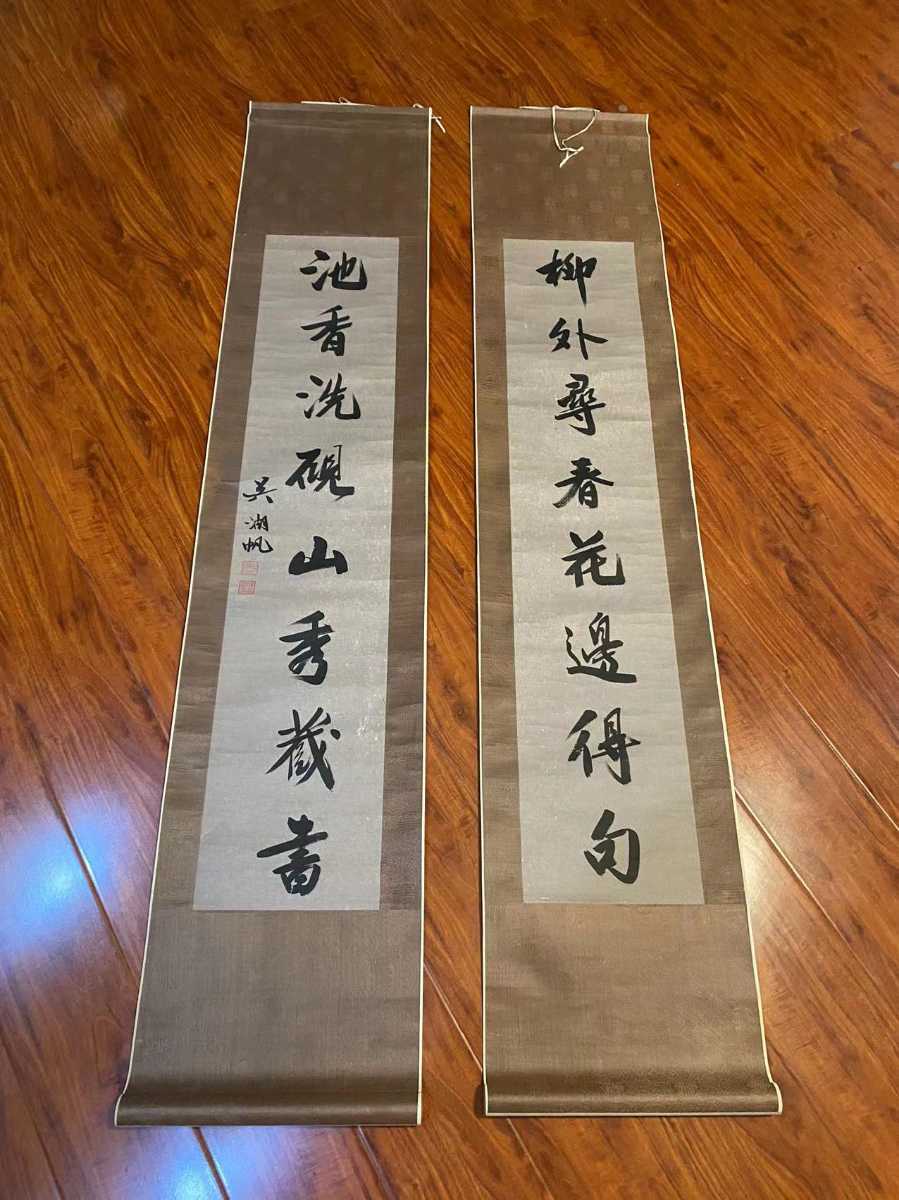 柳外尋春花邊得句
池香洗硯山秀藏書
吳湖帆